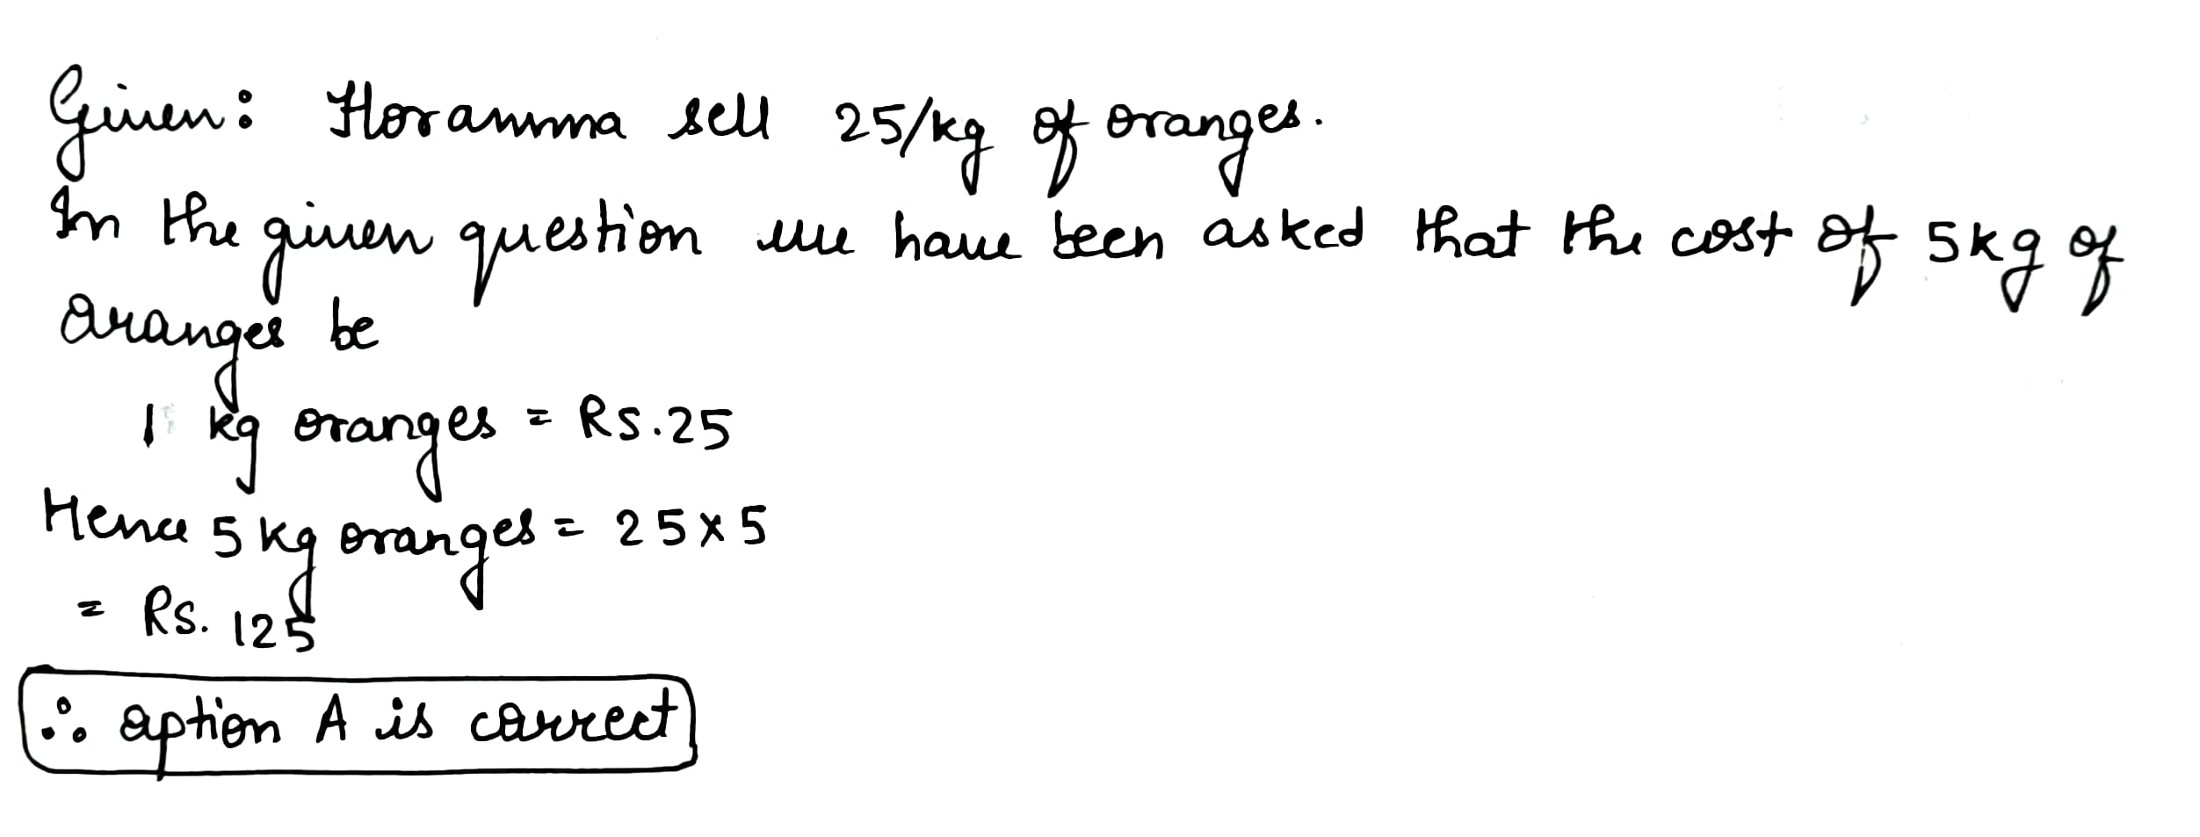 Given: Horamma sell 25/kg of oranges.
In the given question we have been asked that the cost of 5kg of
oranges be
1 kg oranges = Rs.25
Hence 5 kg oranges = 25×5
= Rs. 125
∴ option A is correct